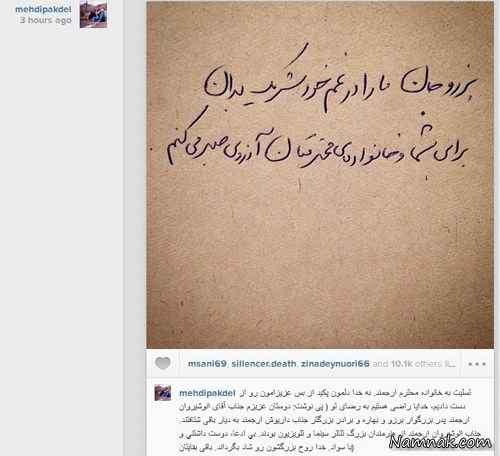 mehdipakdel
3 hours ago
برزو جان ما را در غم خود شریک بدان
برای شما و خانواده‌ی محترمتان آرزوی صبر می کنم
msani69, sillencer.death, zinadeynuori66 and 10.1k others li...
mehdipakdel تسلیت به خانواده محترم ارجمند. به خدا دلمون پکید از بس عزیزامون رو از
دست دادیم، خدایا راضی هستیم به رضای تو ( پی نوشت: دوستان عزیزم جناب آقای انوشیروان
ارجمند پدر بزرگوار برزو و بهاره و برادر بزرگتر جناب داریوش ارجمند به دیار باقی شتافتند.
جناب انوشیروان ارجمند از هنرمندان بزرگ تئاتر سینما و تلویزیون بودند. بی ادعا، دوست داشتنی و
با سواد. خدا روح بزرگشون رو شاد بگرداند. باقی بقایتان)
Namnak.com